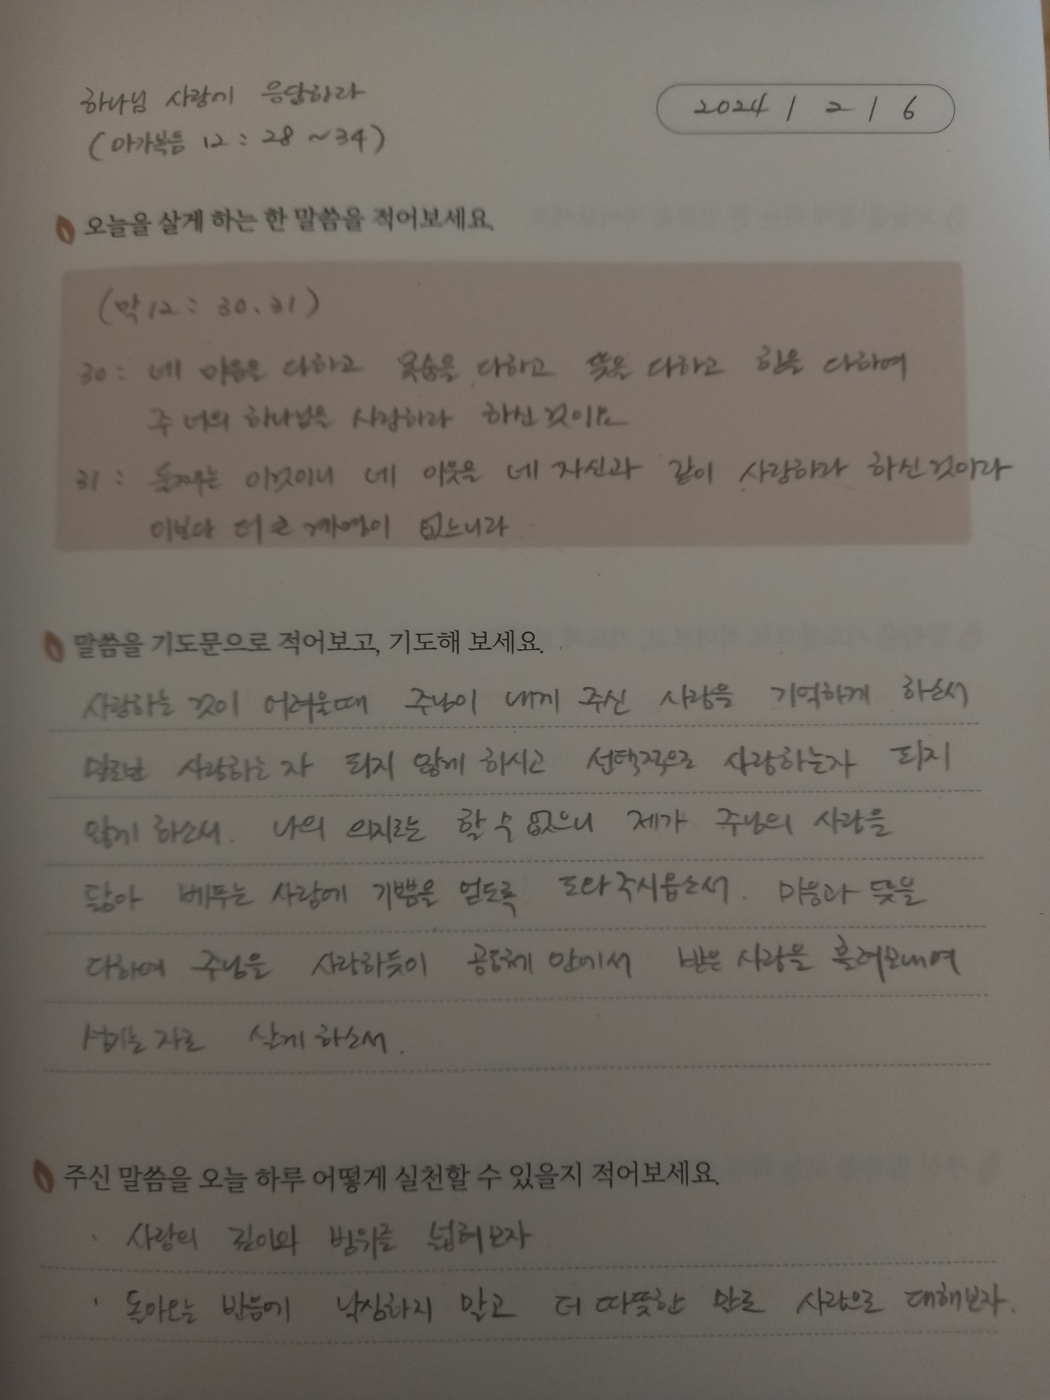 하나님 사랑에 응답하라
2024 / 2 / 6
(마가복음 12 : 28 ~34)
오늘을 살게 하는 한 말씀을 적어보세요.
(막 12 : 30, 31)
30 : 네 마음을 다하고 목숨을 다하고 뜻을 다하고 힘을 다하여
주 너의 하나님을 사랑하라 하신 것이요
31 : 둘째는 이것이니 네 이웃을 네 자신과 같이 사랑하라 하신 것이라
이보다 더 큰 계명이 없느니라
말씀을 기도문으로 적어보고, 기도해 보세요.
사랑하는 것이 어려울때 주님이 내게 주신 사랑을 기억하게 하소서
말로만 사랑하는 자 되지 않게 하시고 선택적으로 사랑하는자 되지
않게 하소서. 나의 의지로는 할 수 없으니 제가 주님의 사랑을
닮아 베푸는 사랑에 기쁨을 얻도록 도와주시옵소서. 마음과 뜻을
다하여 주님을 사랑하듯이 공동체 안에서 받은 사랑을 흘려보내며
섬기는 자로 살게 하소서.
주신 말씀을 오늘 하루 어떻게 실천할 수 있을지 적어보세요.
· 사랑의 깊이와 범위를 넓혀보자
· 돌아오는 반응에 낙심하지 말고 더 따뜻한 말로 사랑으로 대해보자.